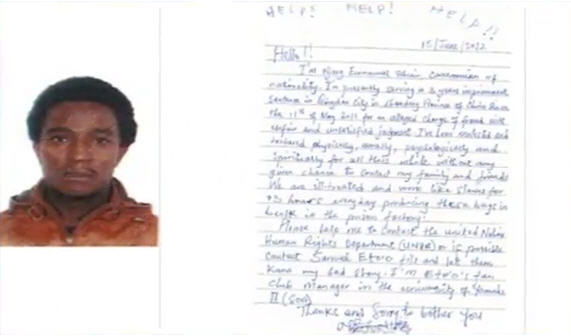 HELP! HELP! HELP!!
15/June/2012
Hello!!
I'm Njong Emmanuel, Cameroonian of
nationality. I'm presently serving a 3 years imprisonment
sentence in Qingdao City in Shandong Province of China since
the 11th of May 2011 for an alleged charge of fraud with
unfair and unsatisfied judgment. I've been molested and
tortured physically, morally, psychologically and
spiritually for all this while without any
given chance to contact my family and friends
We are ill-treated and work like slaves for
13 hours everyday producing these bags in
bulk in the prison factory.
Please help me to contact the United Nations
Human Rights Department (UNHR) or if possible
contact Samuel Eto'o fils and let them
know my sad story. I'm Eto'o's fan
club manager in the university of Yaounde
II (Soa)
Thanks and sorry to bother you